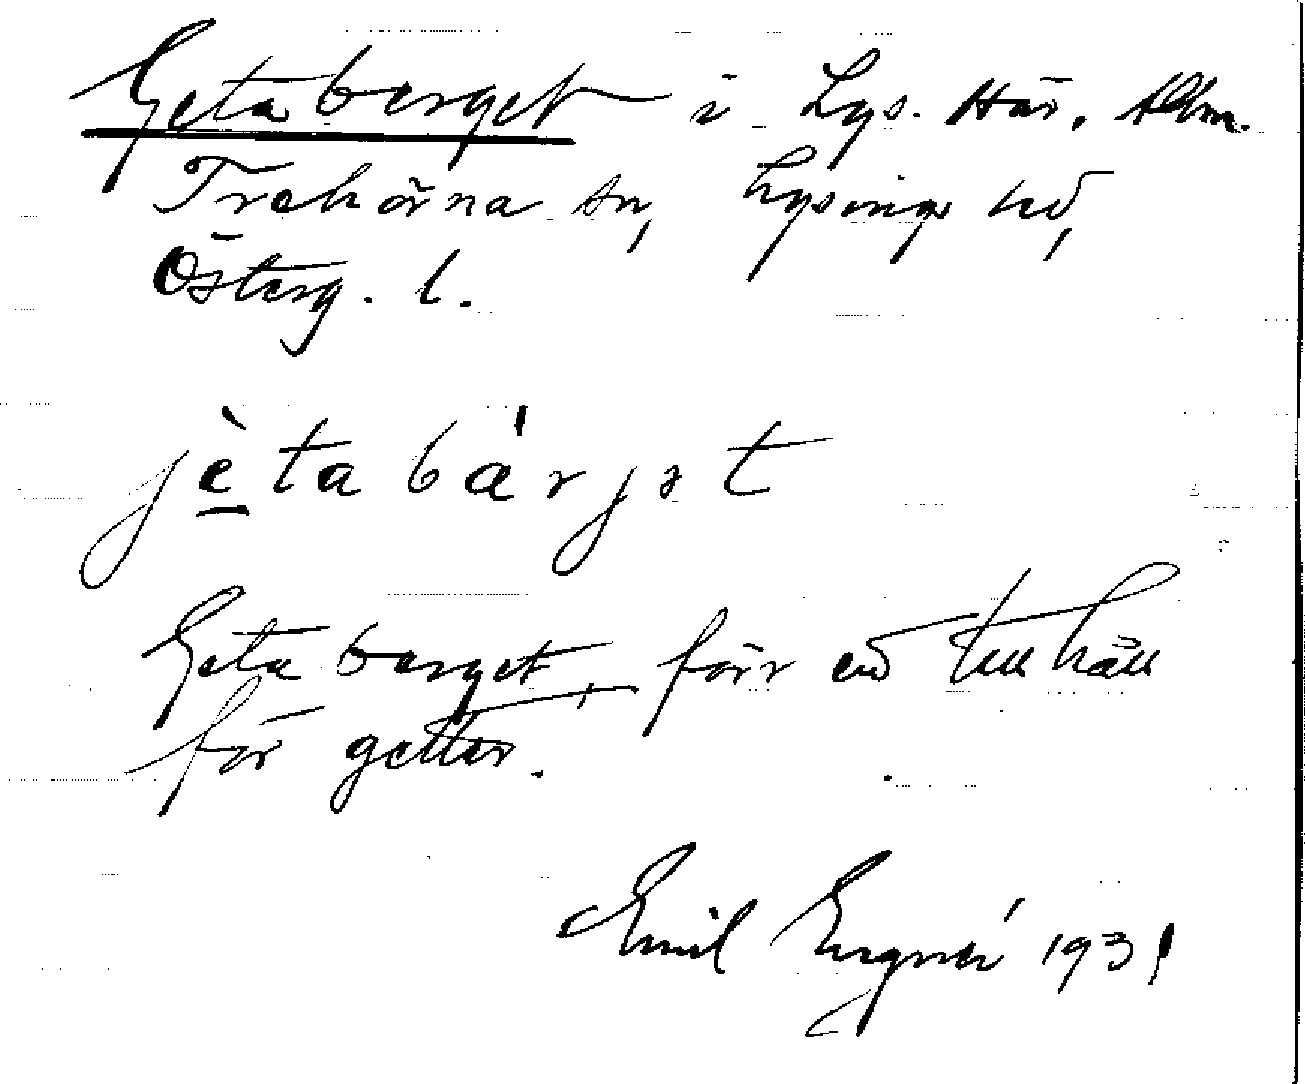 Getaberget i Lys. Här. Allm.
Trehörna sn, Lysings hd,
Österg. l.
jètabárjət
Getaberget, förr en tillhåll
för getter.
Emil 1931